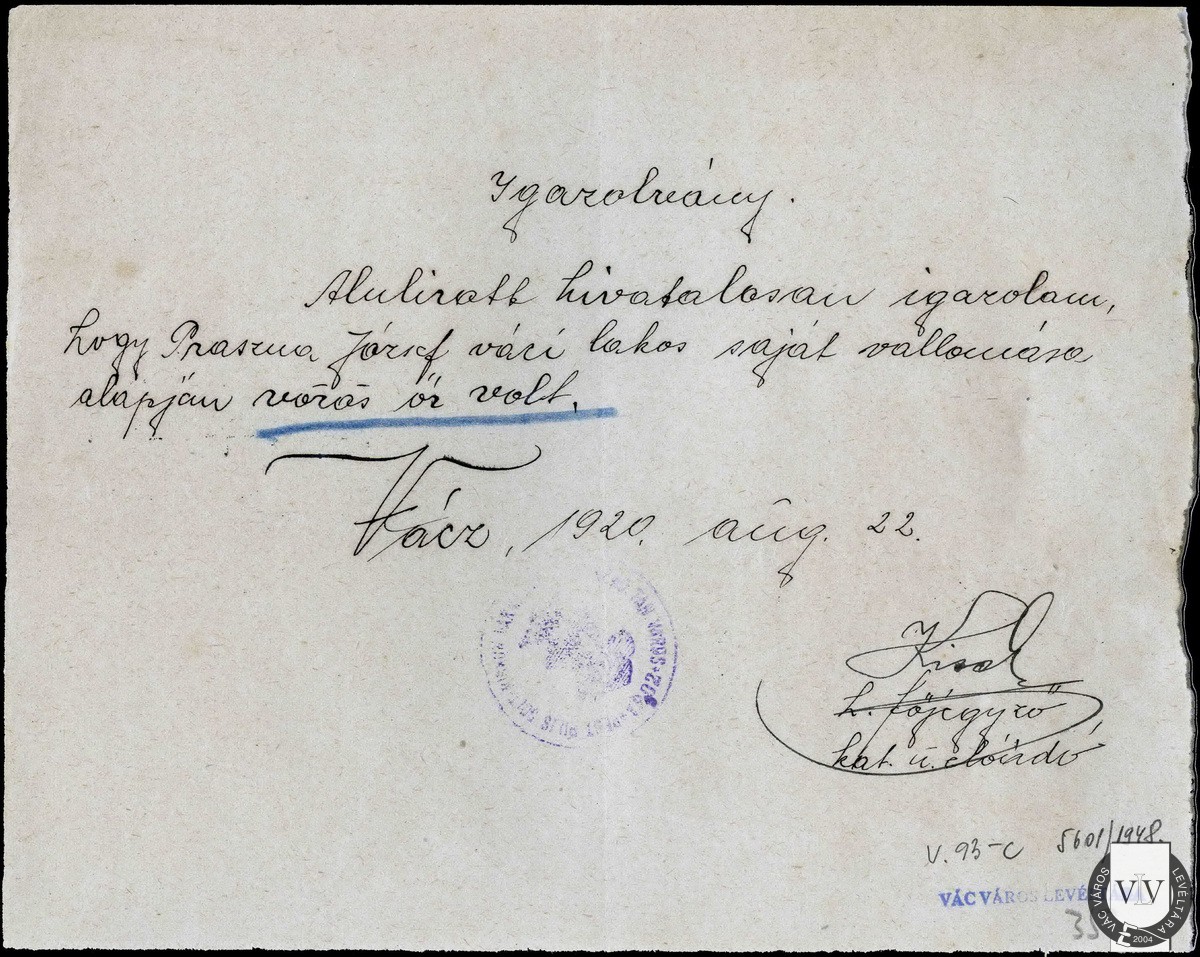 Igazolvány.
Alulirott hivatalosan igazolom,
hogy Praszna József váci lakos saját vallomása
alapján vörös őr volt.
Vácz, 1920. aug. 22.
h. főjegyző
kat. ü. előadó
V. 93-c 5601/1948.
VÁC VÁROS
VÁC VÁROS LEVÉLTÁRA
VLV
2004